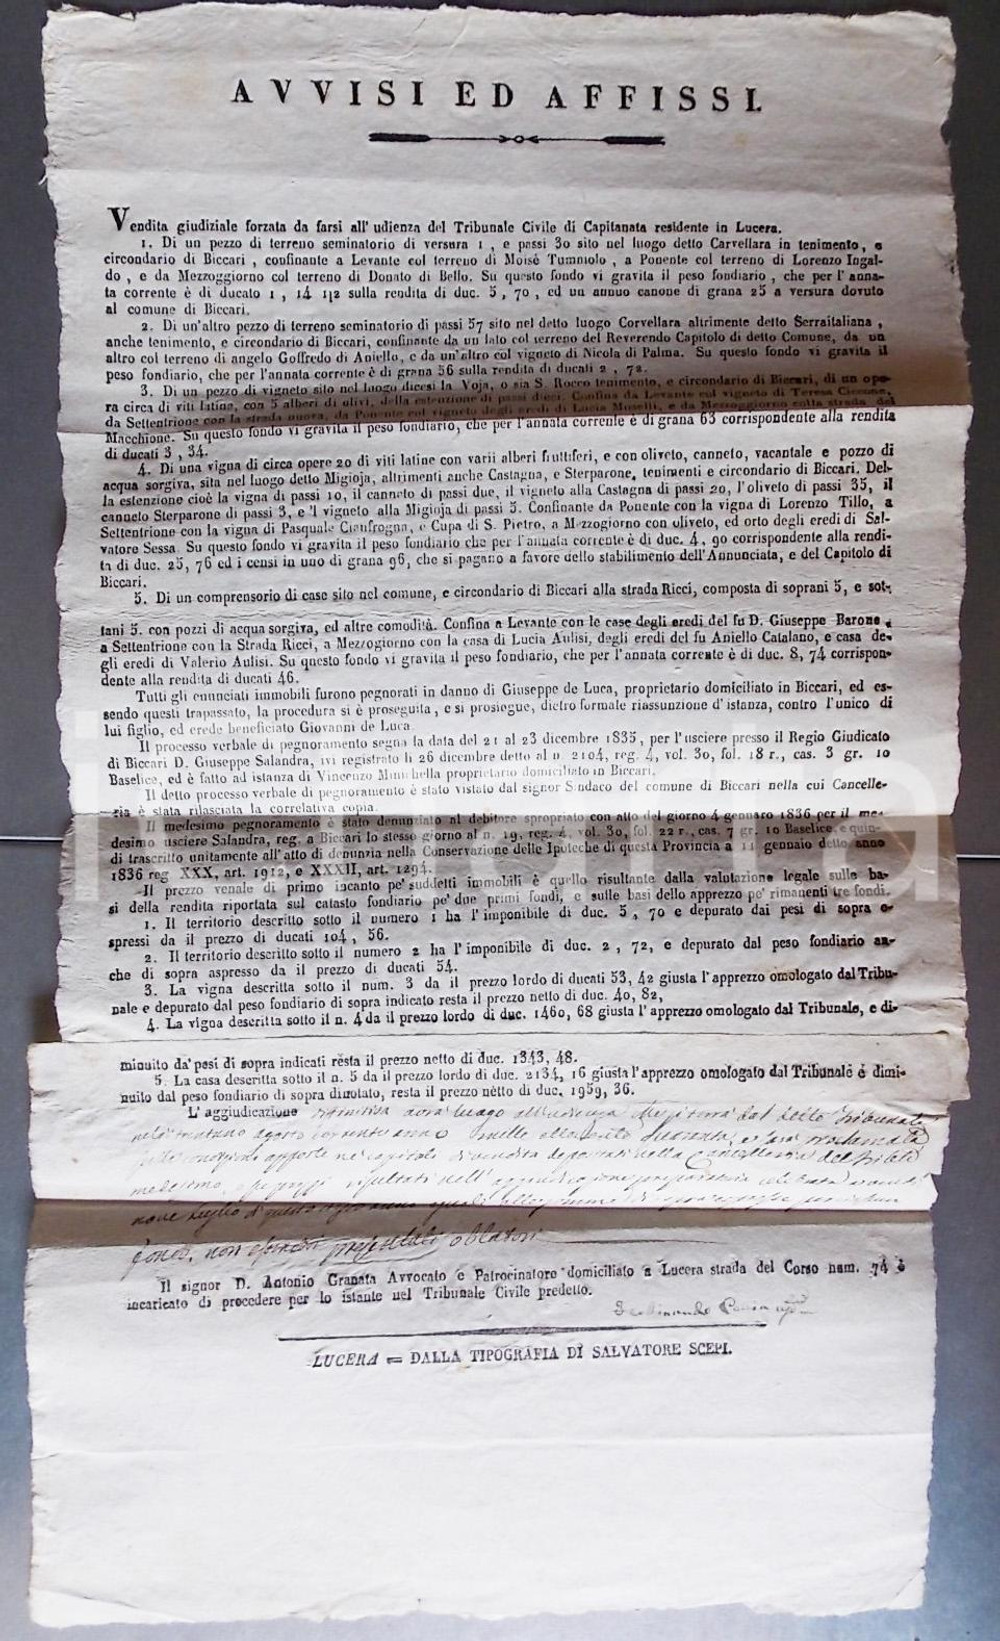 AVVISI ED AFFISSI.
Vendita giudiziale forzata da farsi all' udienza del Tribunale Civile di Capitanata residente in Lucera.
1. Di un pezzo di terreno seminatorio di versura 1, e passi 30 sito nel luogo detto Carvellara in tenimento, e
circondario di Biccari, confinante a Levante col terreno di Moisé Tumniolo, a Ponente col terreno di Lorenzo Ingal-
do, e da Mezzoggiorno col terreno di Donato di Bello. Su questo fondo vi gravita il peso fondiario, che per l'anna-
ta corrente è di ducato 1, 14 1|2 sulla rendita di duc. 5, 70, ed un annuo canone di grana 25 a versura dovuto
al comune di Biccari.
2. Di un'altro pezzo di terreno seminatorio di passi 57 sito nel detto luogo Corvellara altrimente detto Serraitaliana,
anche tenimento, e circondario di Biccari, confinante da un lato col terreno del Reverendo Capitolo di detto Comune, da un
altro col terreno di angelo Goffredo di Aniello, e da un'altro col vigneto di Nicola di Palma. Su questo fondo vi gravita il
peso fondiario, che per l'annata corrente è di grana 56 sulla rendita di ducati 2, 72.
3. Di un pezzo di vigneto sito nel luogo dicesi la Voja, o sia S. Rocco tenimento, e circondario di Biccari, di un ope-
ra circa di viti latine, con 5 alberi di olivi, della estenzione di passi dieci. Confina da Levante col vigneto di Teresa Ciccone,
da Settentrione con la strada nuova, da Ponente col vigneto degli eredi di Lucia Moselli, e da Mezzoggiorno colla strada del
Macchione. Su questo fondo vi gravita il peso fondiario, che per l'annata corrente è di grana 63 corrispondente alla rendita
di ducati 3, 34.
4. Di una vigna di circa opere 20 di viti latine con varii alberi fruttiferi, e con oliveto, canneto, vacantale e pozzo di
acqua sorgiva, sita nel luogo detto Migioja, altrimenti anche Castagna, e Sterparone, tenimenti e circondario di Biccari. Del-
la estenzione cioè la vigna di passi 10, il canneto di passi due, il vigneto alla Castagna di passi 20, l'oliveto di passi 35, il
canneto Sterparone di passi 3, e 'l vigneto alla Migioja di passi 5. Confinante da Ponente con la vigna di Lorenzo Tillo, a
Settentrione con la vigna di Pasquale Cianfrogna, e Cupa di S. Pietro, a Mezzogiorno con oliveto, ed orto degli eredi di Sal-
vatore Sessa. Su questo fondo vi gravita il peso fondiario che per l'annata corrente è di duc. 4, 90 corrispondente alla rendi-
ta di duc. 25, 76 ed i censi in uno di grana 96, che si pagano a favore dello stabilimento dell'Annunciata, e del Capitolo di
Biccari.
5. Di un comprensorio di case sito nel comune, e circondario di Biccari alla strada Ricci, composta di soprani 5, e sot-
tani 5. con pozzi di acqua sorgiva, ed altre comodità. Confina a Levante con le case degli eredi del fu D. Giuseppe Barone,
a Settentrione con la Strada Ricci, a Mezzogiorno con la casa di Lucia Aulisi, degli eredi del fu Aniello Catalano, e casa de-
gli eredi di Valerio Aulisi. Su questo fondo vi gravita il peso fondiario, che per l'annata corrente è di duc. 8, 74 corrispon-
dente alla rendita di ducati 46.
Tutti gli enunciati immobili furono pegnorati in danno di Giuseppe de Luca, proprietario domiciliato in Biccari, ed es-
sendo questi trapassato, la procedura si è proseguita, e si prosiegue, dietro formale riassunzione d'istanza, contro l'unico di
lui figlio, ed erede beneficiato Giovanni de Luca.
Il processo verbale di pegnoramento segna la data del 21 al 23 dicembre 1835, per l'usciere presso il Regio Giudicato
di Biccari D. Giuseppe Salandra, ivi registrato li 26 dicembre detto al n. 2104, reg. 4, vol. 30, fol. 18 r., cas. 3 gr. 10
Baselice, ed è fatto ad istanza di Vincenzo Minichella proprietario domiciliato in Biccari.
Il detto processo verbale di pegnoramento è stato vistato dal signor Sindaco del comune di Biccari nella cui Cancelle-
ria è stata rilasciata la correlativa copia.
Il medesimo pegnoramento è stato denunziato al debitore spropriato con atto del giorno 4 gennaro 1836 per il me-
desimo usciere Salandra, reg. a Biccari lo stesso giorno al n. 19, reg. 4, vol. 30, fol. 22 r., cas. 7 gr. 10 Baselice, e quin-
di trascritto unitamente all'atto di denunzia nella Conservazione delle Ipoteche di questa Provincia a 11 gennaio detto anno
1836 reg XXX, art. 1912, e XXXII, art. 1294.
Il prezzo venale di primo incanto pe' suddetti immobili è quello risultante dalla valutazione legale sulle ba-
si della rendita riportata sul catasto fondiario pe' due primi fondi, e sulle basi dello apprezzo pe' rimanenti tre fondi.
1. Il territorio descritto sotto il numero 1 ha l'imponibile di duc. 5, 70 e depurato dai pesi di sopra e-
spressi da il prezzo di ducati 104, 56.
2. Il territorio descritto sotto il numero 2 ha l'imponibile di duc. 2, 72, e depurato dal peso fondiario an-
che di sopra aspresso da il prezzo di ducati 54.
3. La vigna descritta sotto il num. 3 da il prezzo lordo di ducati 53, 42 giusta l'apprezzo omologato dal Tribu-
nale e depurato dal peso fondiario di sopra indicato resta il prezzo netto di duc. 40, 82,
4. La vigna descritta sotto il n. 4 da il prezzo lordo di duc. 1460, 68 giusta l'apprezzo omologato dal Tribunale, e di-
minuito da' pesi di sopra indicati resta il prezzo netto di duc. 1343, 48.
5. La casa descritta sotto il n. 5 da il prezzo lordo di duc. 2134, 16 giusta l'apprezzo omologato dal Tribunale e dimi-
nuito dal peso fondiario di sopra dinotato, resta il prezzo netto di duc. 1959, 36.
L'aggiudicazione diffinitiva avrà luogo all'udienza che terrà dal detto Tribunale
nel trentuno agosto corrente anno mille ottocento quaranta, e sarà proclamata
colle condizioni apposte nel capitolato di vendita depositati nella Cancelleria del Tribunale
medesimo, e prezzi risultati dell'aggiudicazione preparatoria celebrata
nove luglio di questo
non essendosi presentati oblatori
Il signor D. Antonio Granata Avvocato e Patrocinatore domiciliato a Lucera strada del Corso num. 74 è
incaricato di procedere per lo istante nel Tribunale Civile predetto.
Ferdinando
LUCERA = DALLA TIPOGRAFIA DI SALVATORE SCEPI.